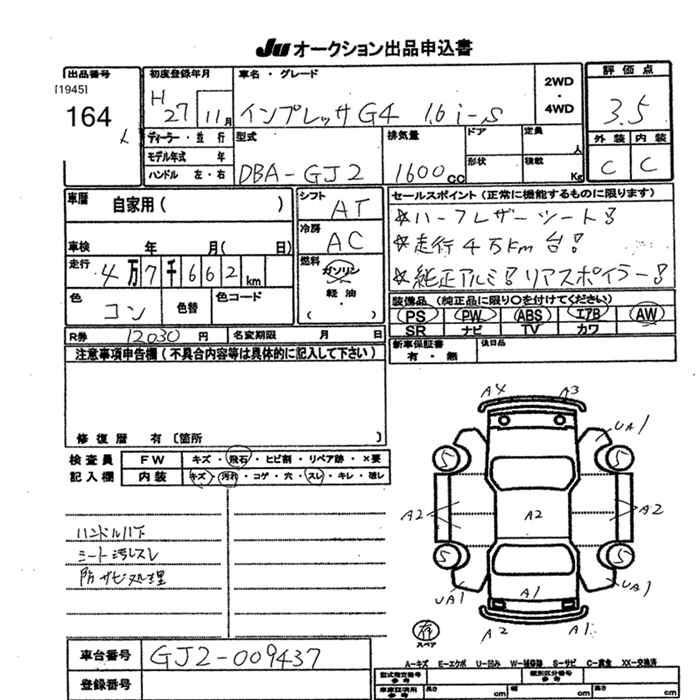 JU オークション出品申込書
出品番号
[1945]
164
初度登録年月
H 27 11月
ディーラー・並行
モデル年式 年
ハンドル 左・右
車名・グレード
インプレッサG4 1.6i-S
2WD
・
4WD
型式
DBA-GJ2
排気量
1600cc
ドア
形状
定員 人
積載 Kg
評価点
3.5
外装 内装
C C
車歴
自家用( )
車検 年 月( 日)
走行
4万7千662km
色
コン
色替
色コード
シフト
AT
冷房
AC
燃料
ガソリン
軽油
・
( )
セールスポイント(正常に機能するものに限ります)
☆ハーフレザーシート!
☆走行4万Km台!
☆純正アルミ!リアスポイラー!
装備品(純正品に限り○を付けてください)
PS PW ABS エアB AW
SR ナビ TV カワ
新車保証書
有・無
後日品
R券 12030円
名変期限 月 日
注意事項申告欄(不具合内容等は具体的に記入して下さい)
修復歴 有〔箇所 〕
検査員
記入欄
FW キズ・飛石・ヒビ割・リペア跡・×要
内装 キズ・汚れ・コゲ・穴・スレ・キレ・破レ
ハンドルハゲ
シート汚レスレ
防サビ処理
A4 A3
UA1
5 5
A2 A2 A2
5 5
UA1 A1 UA1
A2 A1
スペア
車台番号 GJ2-009437
登録番号
A-キズ E-エクボ U-凹み W-補修跡 S-サビ C-腐食 XX-交換済
型式指定番号
参考
類別区分番号
参考
車庫証明用
参考
長さ cm
幅 cm
高さ cm